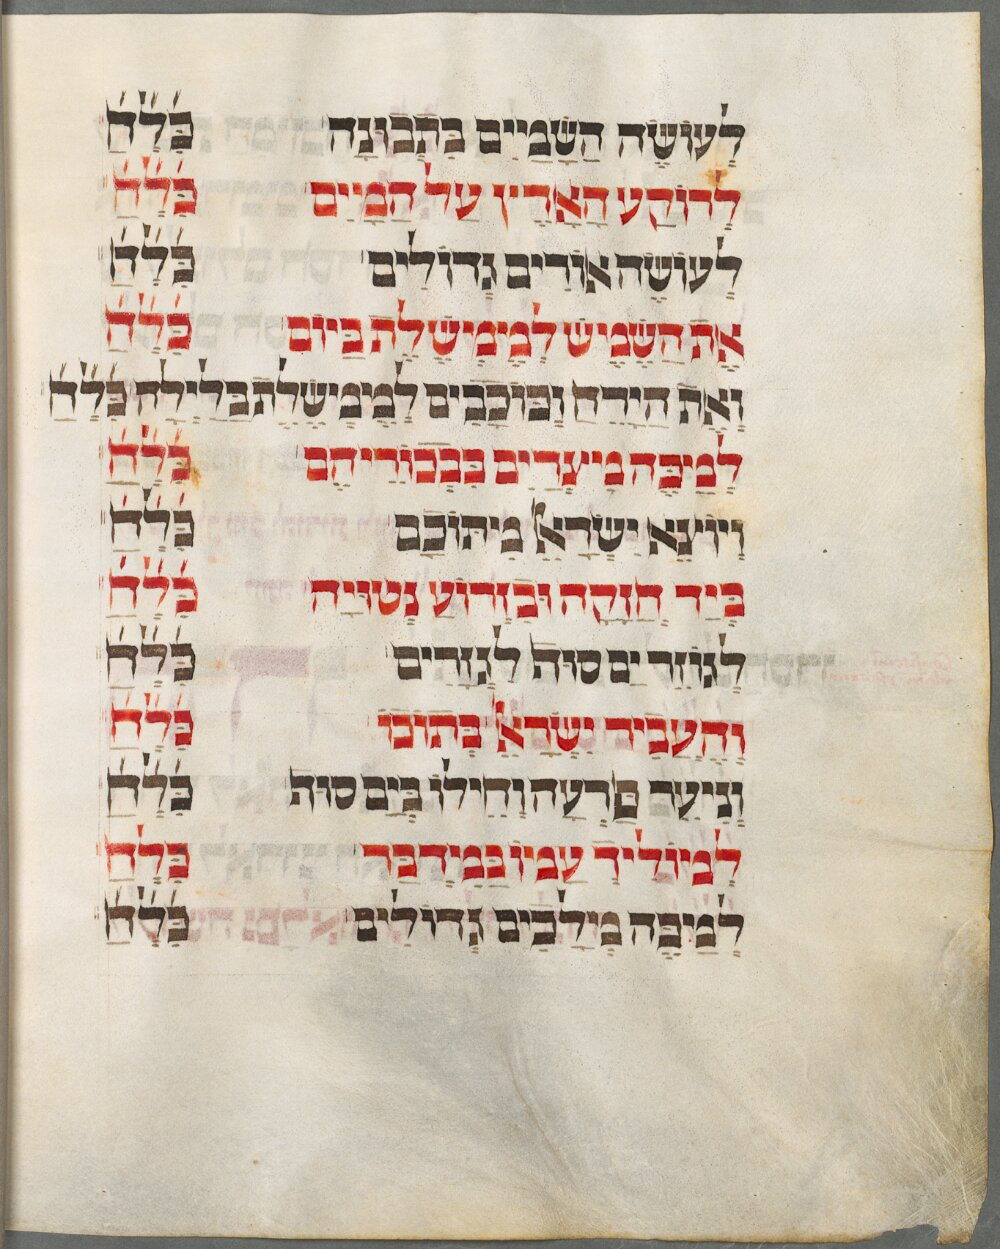 לעושה השמיים בתבונה כ֗ל֗ח֗
לרוקע הארץ על המיים כ֗ל֗ח֗
לעושה אורים גדולים כ֗ל֗ח֗
את השמיש לממישלת ביום כ֗ל֗ח֗
ואת הירח וכוכבים לממישלת בלילה כ֗ל֗ח֗
למכה מיצרים בבכוריהם כ֗ל֗ח֗
ויוצא ישרﭏ מיתוכם כ֗ל֗ח֗
ביד חזקה ובזרוע נטוייה כ֗ל֗ח֗
לגוזר ים סוף לגזרים כ֗ל֗ח֗
והעביר ישרﭏ בתוכו כ֗ל֗ח֗
וניער פרעה וחילו בים סוף כ֗ל֗ח֗
למוליך עמו במידבר כ֗ל֗ח֗
למכה מילכים גדולים כ֗ל֗ח֗